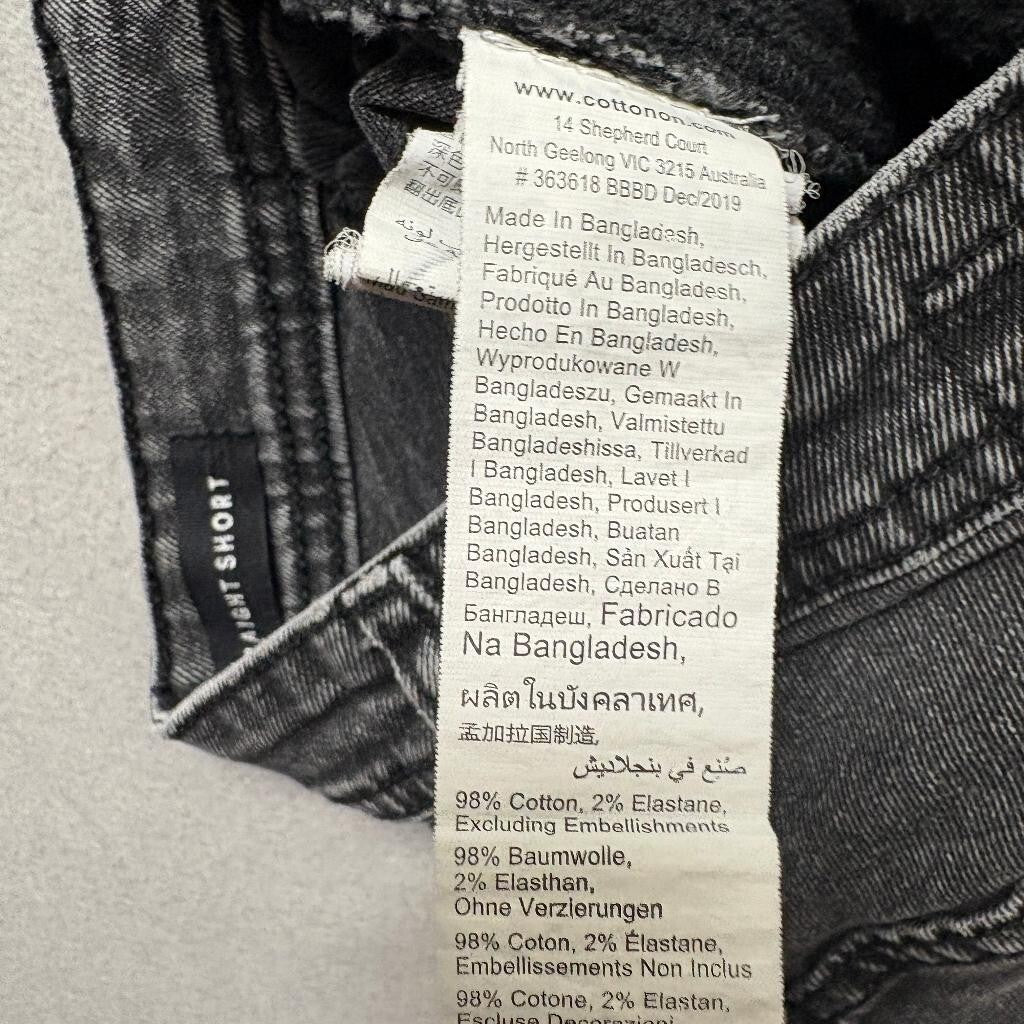 www.cottonon.com
14 Shepherd Court
North Geelong VIC 3215 Australia
# 363618 BBBD Dec/2019
Made In Bangladesh,
Hergestellt In Bangladesch,
Fabriqué Au Bangladesh,
Prodotto In Bangladesh,
Hecho En Bangladesh,
Wyprodukowane W
Bangladeszu, Gemaakt In
Bangladesh, Valmistettu
Bangladeshissa, Tillverkad
I Bangladesh, Lavet I
Bangladesh, Produsert I
Bangladesh, Buatan
Bangladesh, Sản Xuất Tại
Bangladesh, Сделано В
Бангладеш, Fabricado
Na Bangladesh,
ผลิตในบังคลาเทศ,
孟加拉国制造,
صُنِع في بنجلاديش
98% Cotton, 2% Elastane,
Excluding Embellishments
98% Baumwolle,
2% Elasthan,
Ohne Verzierungen
98% Coton, 2% Élastane,
Embellissements Non Inclus
98% Cotone, 2% Elastan,
Escluse Decorazioni
深色
不可
翻出底
SHORT